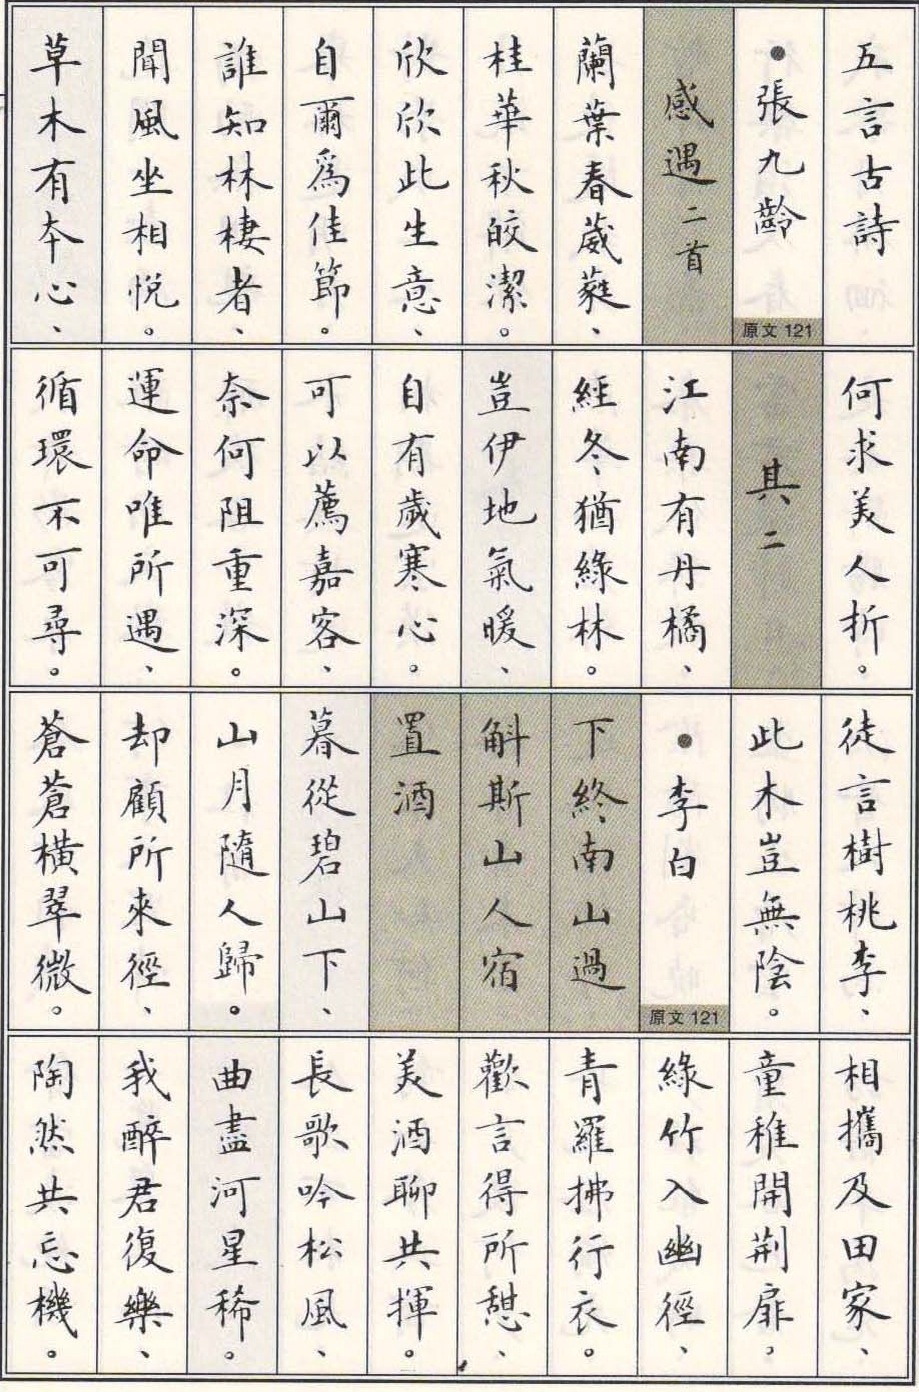 五言古詩
●張九齡
原文 121
感遇二首
蘭葉春葳蕤、
桂華秋皎潔。
欣欣此生意、
自爾為佳節。
誰知林棲者、
聞風坐相悅。
草木有本心、
何求美人折。
其二
江南有丹橘、
經冬猶綠林。
豈伊地氣暖、
自有歲寒心。
可以薦嘉客、
奈何阻重深。
運命唯所遇、
循環不可尋。
徒言樹桃李、
此木豈無陰。
●李白
原文 121
下終南山過
斛斯山人宿
置酒
暮從碧山下、
山月隨人歸。
却顧所來徑、
蒼蒼橫翠微。
相攜及田家、
童稚開荆扉，
綠竹入幽徑、
青羅拂行衣。
歡言得所憩、
美酒聊共揮。
長歌吟松風、
曲盡河星稀。
我醉君復樂、
陶然共忘機。